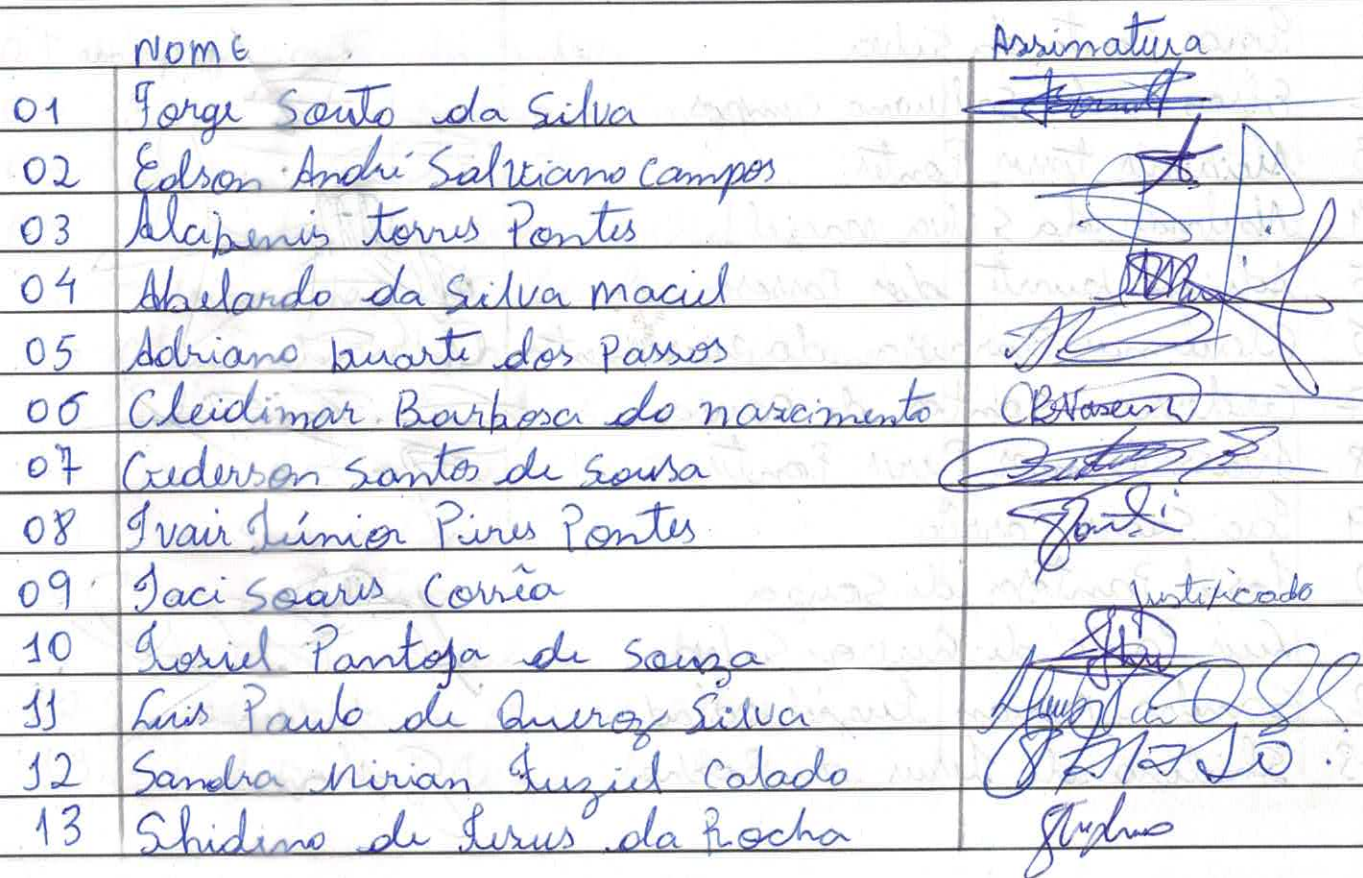 Nome Assinatura
01 Jorge Souto da Silva
02 Edson André Salviano Campos
03 Alcibenis torres Pontes
04 Abelardo da Silva Maciel
05 Adriano Duarte dos Passos
06 Cleidimar Barbosa do nascimento CBNascim
07 Crederson Santos de Sousa
08 Ivair Júnior Pires Pontes
09 Jaci Soares Corrêa Justificado
10 Josiel Pantoja de Souza
11 Luis Paulo de Queroz Silva
12 Sandra Mirian Fuziel Calado
13 Shidino de Jesus da Rocha